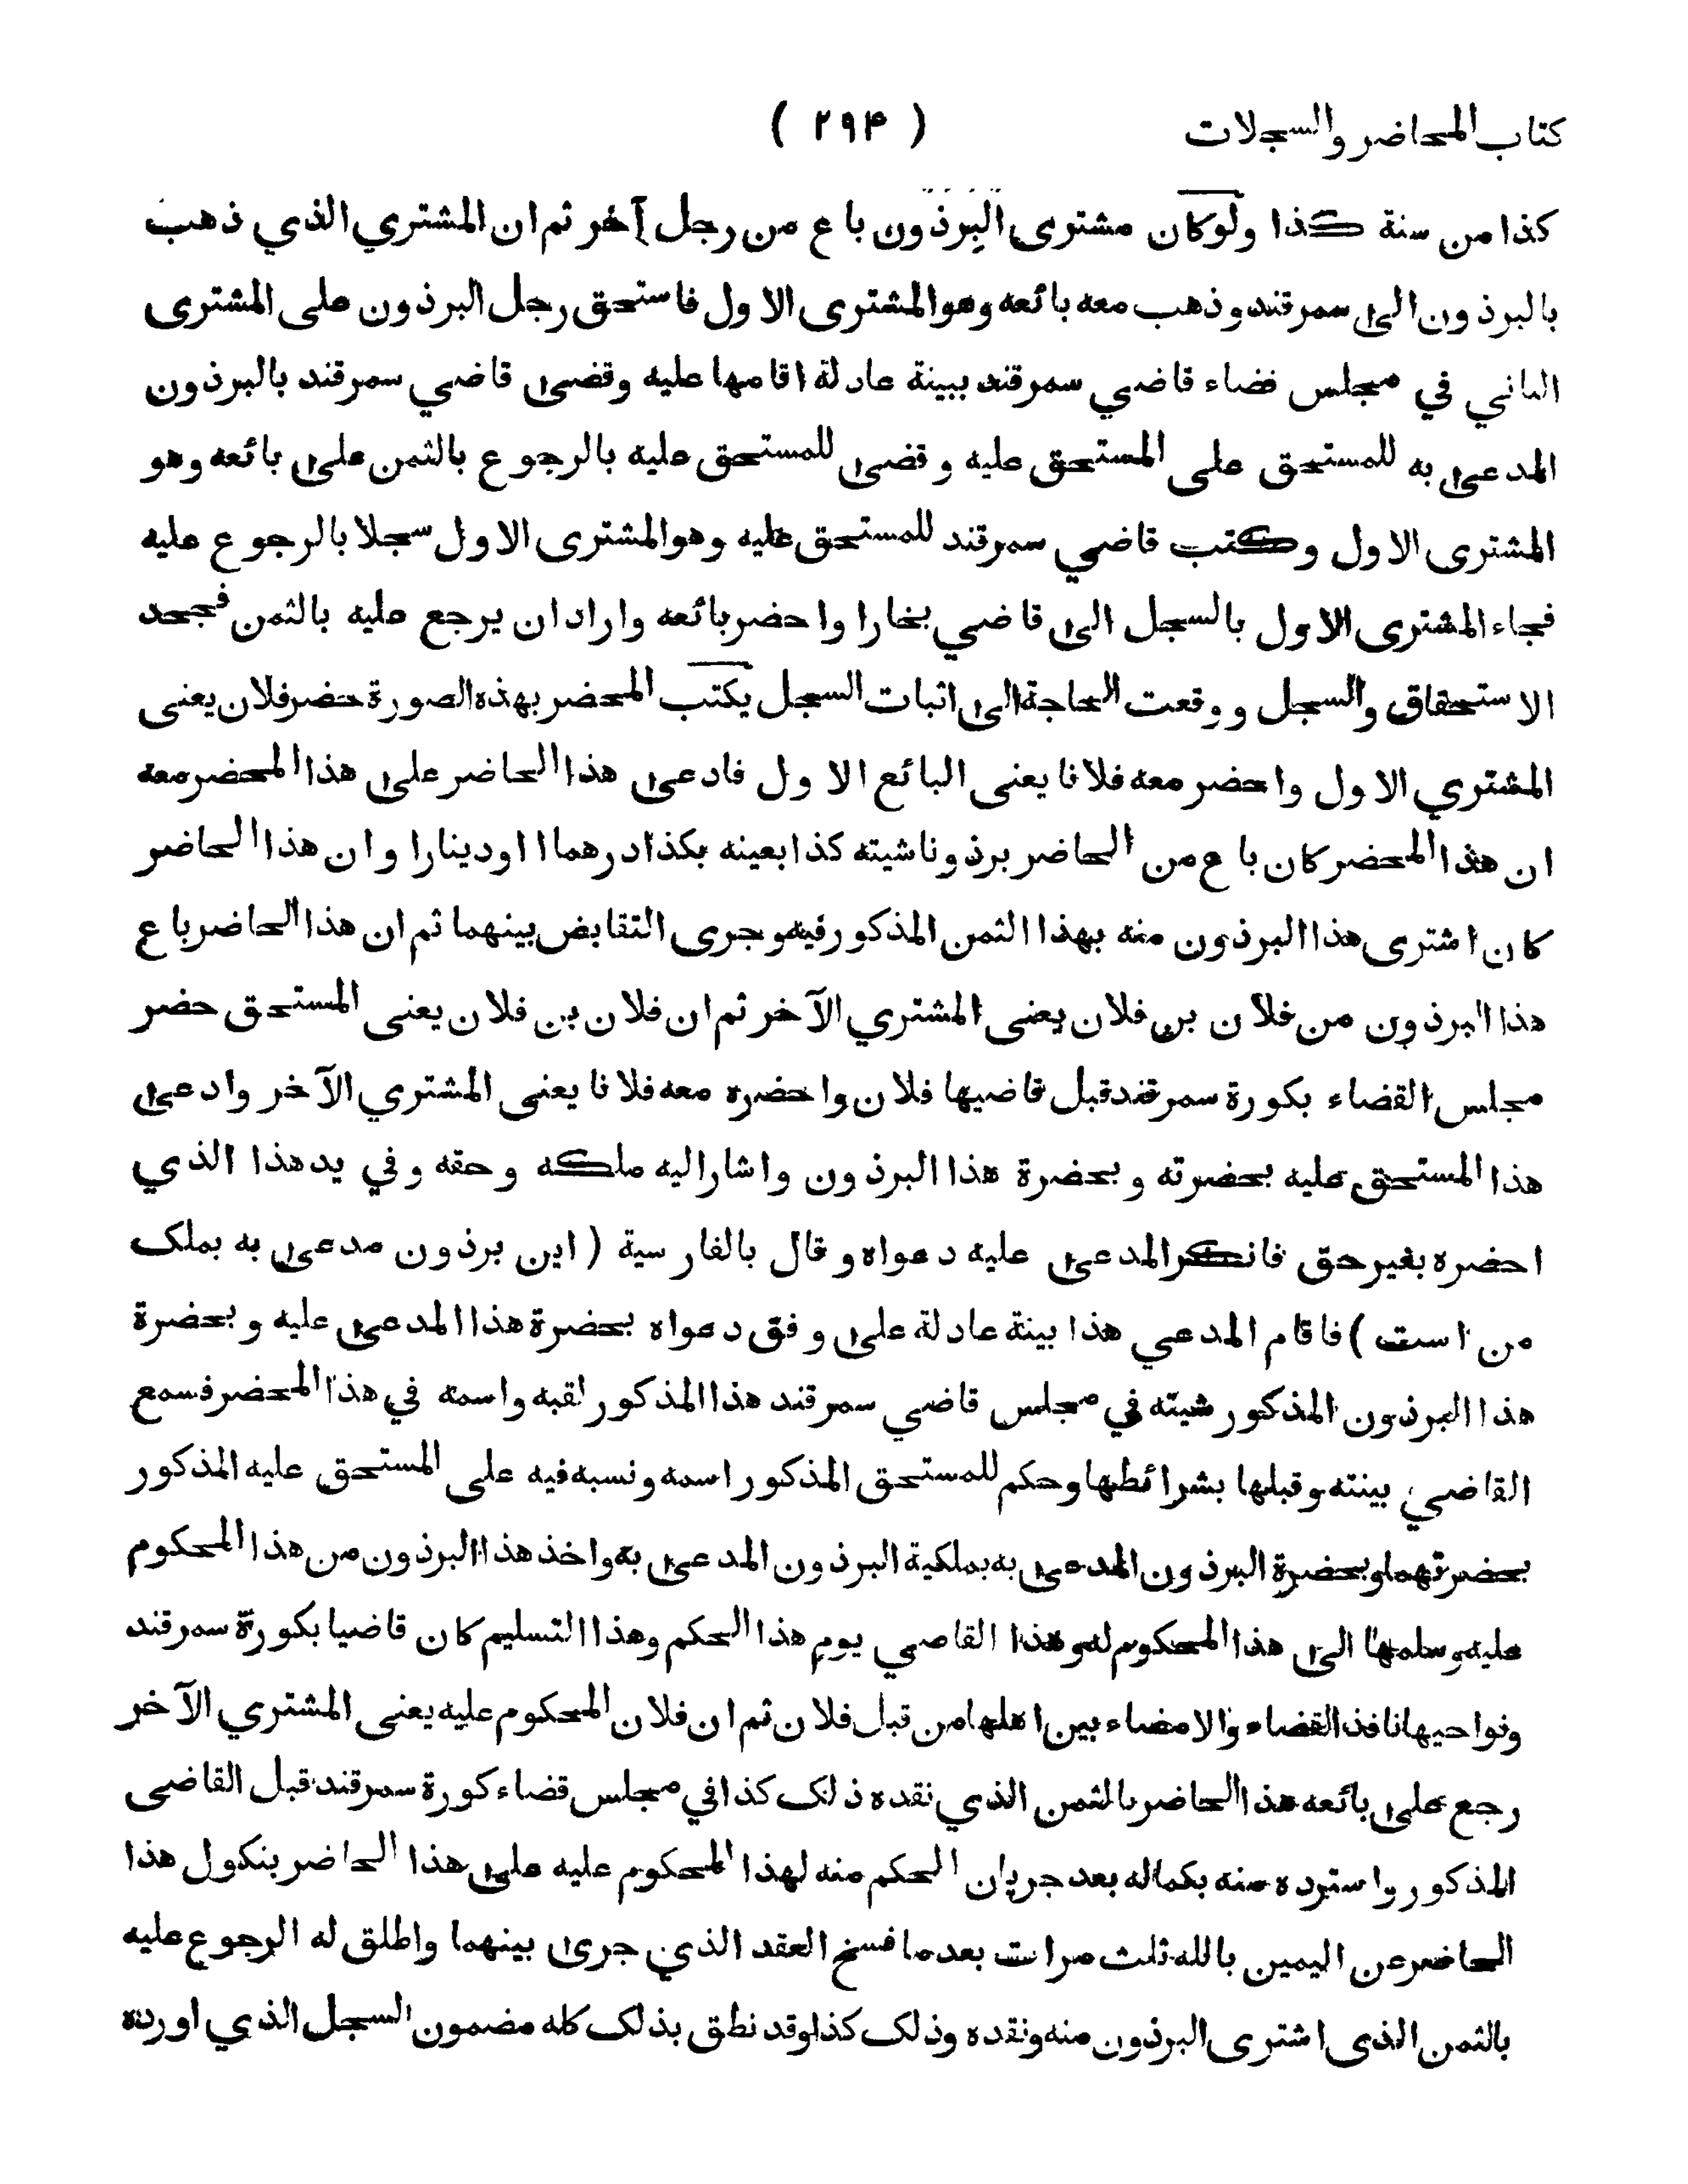 كتاب المحاضر والسجلات ( ۲۹۴ )
كذا من سنة كذا ولو كان مشترى البرذون باع من رجل آخر ثم ان المشتري الذي ذهب
بالبرذون الى سمرقند وذهب معه بائعه وهو المشترى الاول فاستحق رجل البرذون على المشترى
الثاني في مجلس قضاء قاضي سمرقند ببينة عادلة اقامها عليه وقضى قاضي سمرقند بالبرذون
المدعى به للمستحق على المستحق عليه وقضى للمستحق عليه بالرجوع بالثمن على بائعه وهو
المشترى الاول وكتب قاضي سمرقند للمستحق عليه وهو المشترى الاول سجلا بالرجوع عليه
فجاء المشترى الاول بالسجل الى قاضي بخارا واحضر بائعه واراد ان يرجع عليه بالثمن فجحد
الاستحقاق والسجل ووقعت الحاجة الى اثبات السجل يكتب المحضر بهذه الصورة حضر فلان يعنى
المشتري الاول واحضر معه فلانا يعنى البائع الاول فادعى هذا الحاضر على هذا المحضر معه
ان هذا المحضر كان باع من الحاضر برذونا شيته كذا بعينه بكذا درهما او دينارا وان هذا الحاضر
كان اشترى هذا البرذون منه بهذا الثمن المذكور فيه وجرى التقابض بينهما ثم ان هذا الحاضر باع
هذا البرذون من فلان بن فلان يعنى المشتري الآخر ثم ان فلان بن فلان يعنى المستحق حضر
مجلس القضاء بكورة سمرقند قبل قاضيها فلان واحضره معه فلانا يعنى المشتري الآخر وادعى
هذا المستحق عليه بحضرته وبحضرة هذا البرذون واشار اليه ملكه وحقه وفي يد هذا الذي
احضره بغير حق فانكر المدعى عليه دعواه وقال بالفارسية ( اين برذون مدعى به بملك
من است ) فاقام المدعي هذا بينة عادلة على وفق دعواه بحضرة هذا المدعى عليه وبحضرة
هذا البرذون المذكور شيته في مجلس قاضي سمرقند هذا المذكور لقبه واسمه في هذا المحضر فسمع
القاضي بينته وقبلها بشرائطها وحكم للمستحق المذكور اسمه ونسبه فيه على المستحق عليه المذكور
بحضرتهما وبحضرة البرذون المدعى به بملكية البرذون المدعى به واخذ هذا البرذون من هذا المحكوم
عليه وسلمها الى هذا المحكوم له وهذا القاضي يوم هذا الحكم وهذا التسليم كان قاضيا بكورة سمرقند
ونواحيها نافذ القضاء والامضاء بين اهلها من قبل فلان ثم ان فلان المحكوم عليه يعنى المشتري الآخر
رجع على بائعه هذا الحاضر بالثمن الذي نقده ذلك كذا في مجلس قضاء كورة سمرقند قبل القاضى
المذكور واسترده منه بكماله بعد جريان الحكم منه لهذا المحكوم عليه على هذا الحاضر بنكول هذا
الحاضر عن اليمين بالله ثلث مرات بعد ما فسخ العقد الذي جرى بينهما واطلق له الرجوع عليه
بالثمن الذى اشترى البرذون منه ونقده وذلك كذا وقد نطق بذلك كله مضمون السجل الذي اورده